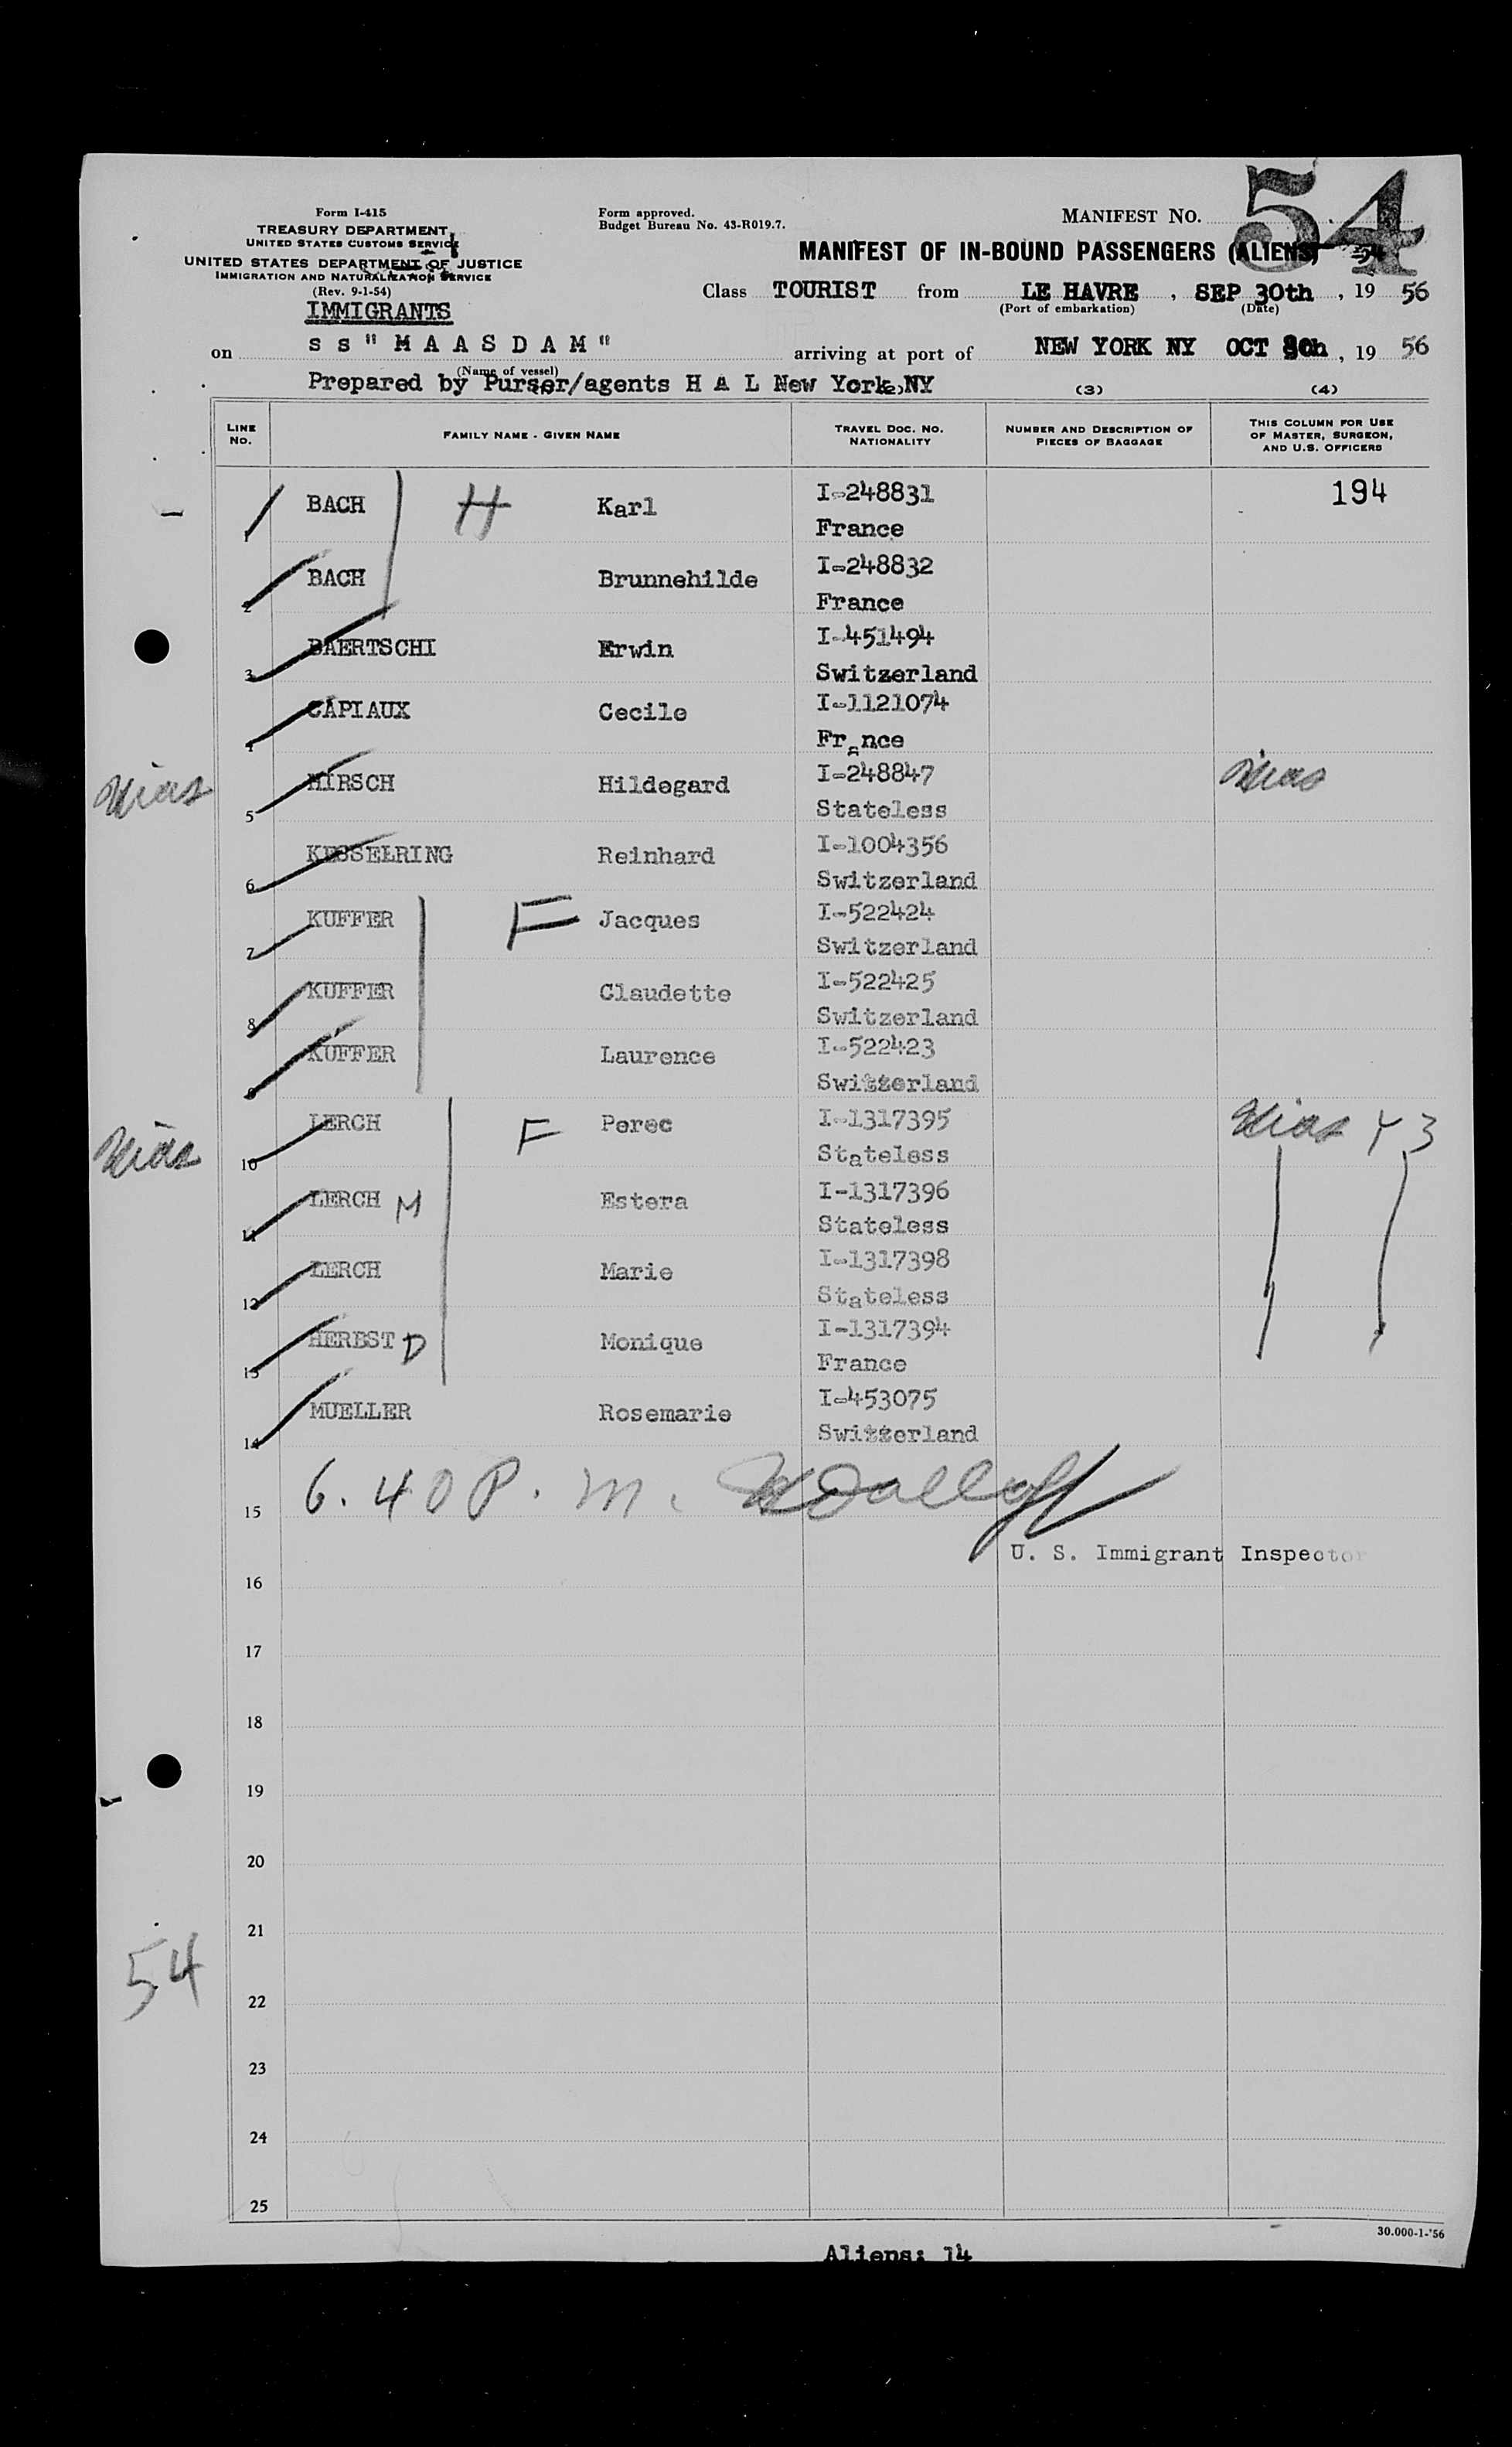 Form I-415
TREASURY DEPARTMENT
UNITED STATES CUSTOMS SERVICE
UNITED STATES DEPARTMENT OF JUSTICE
IMMIGRATION AND NATURALIZATION SERVICE
(Rev. 9-1-54)
IMMIGRANTS
Form approved.
Budget Bureau No. 43-R019.7.
MANIFEST NO. 54
MANIFEST OF IN-BOUND PASSENGERS (ALIENS)
Class TOURIST from LE HAVRE , SEP 30th , 19 56
(Port of embarkation) (Date)
on s s " M A A S D A M " arriving at port of NEW YORK NY OCT , 19 56
(Name of vessel)
Prepared by Purser/agents H A L New York NY
(2) (3) (4)
LINE NO. FAMILY NAME - GIVEN NAME TRAVEL DOC. NO. NATIONALITY NUMBER AND DESCRIPTION OF PIECES OF BAGGAGE THIS COLUMN FOR USE OF MASTER, SURGEON, AND U.S. OFFICERS
1 BACH H Karl I-248831 194
France
2 BACH Brunnehilde I-248832
France
3 BAERTSCHI Erwin I-451494
Switzerland
4 CAPIAUX Cecile I-1121074
France
Hias 5 HIRSCH Hildegard I-248847 Hias
Stateless
6 KESSELRING Reinhard I-1004356
Switzerland
7 KUFFER F Jacques I-522424
Switzerland
8 KUFFER Claudette I-522425
Switzerland
9 KUFFER Laurence I-522423
Switzerland
Hias 10 LERCH F Perec I-1317395 Hias Y 3
Stateless
11 LERCH M Estera I-1317396
Stateless
12 LERCH Marie I-1317398
Stateless
13 HERBST D Monique I-1317394
France
14 MUELLER Rosemarie I-453075
Switzerland
15 6.40 P. m.
U. S. Immigrant Inspector
16
17
18
19
20
21
54
22
23
24
25
30.000-1-'56
Aliens: 14